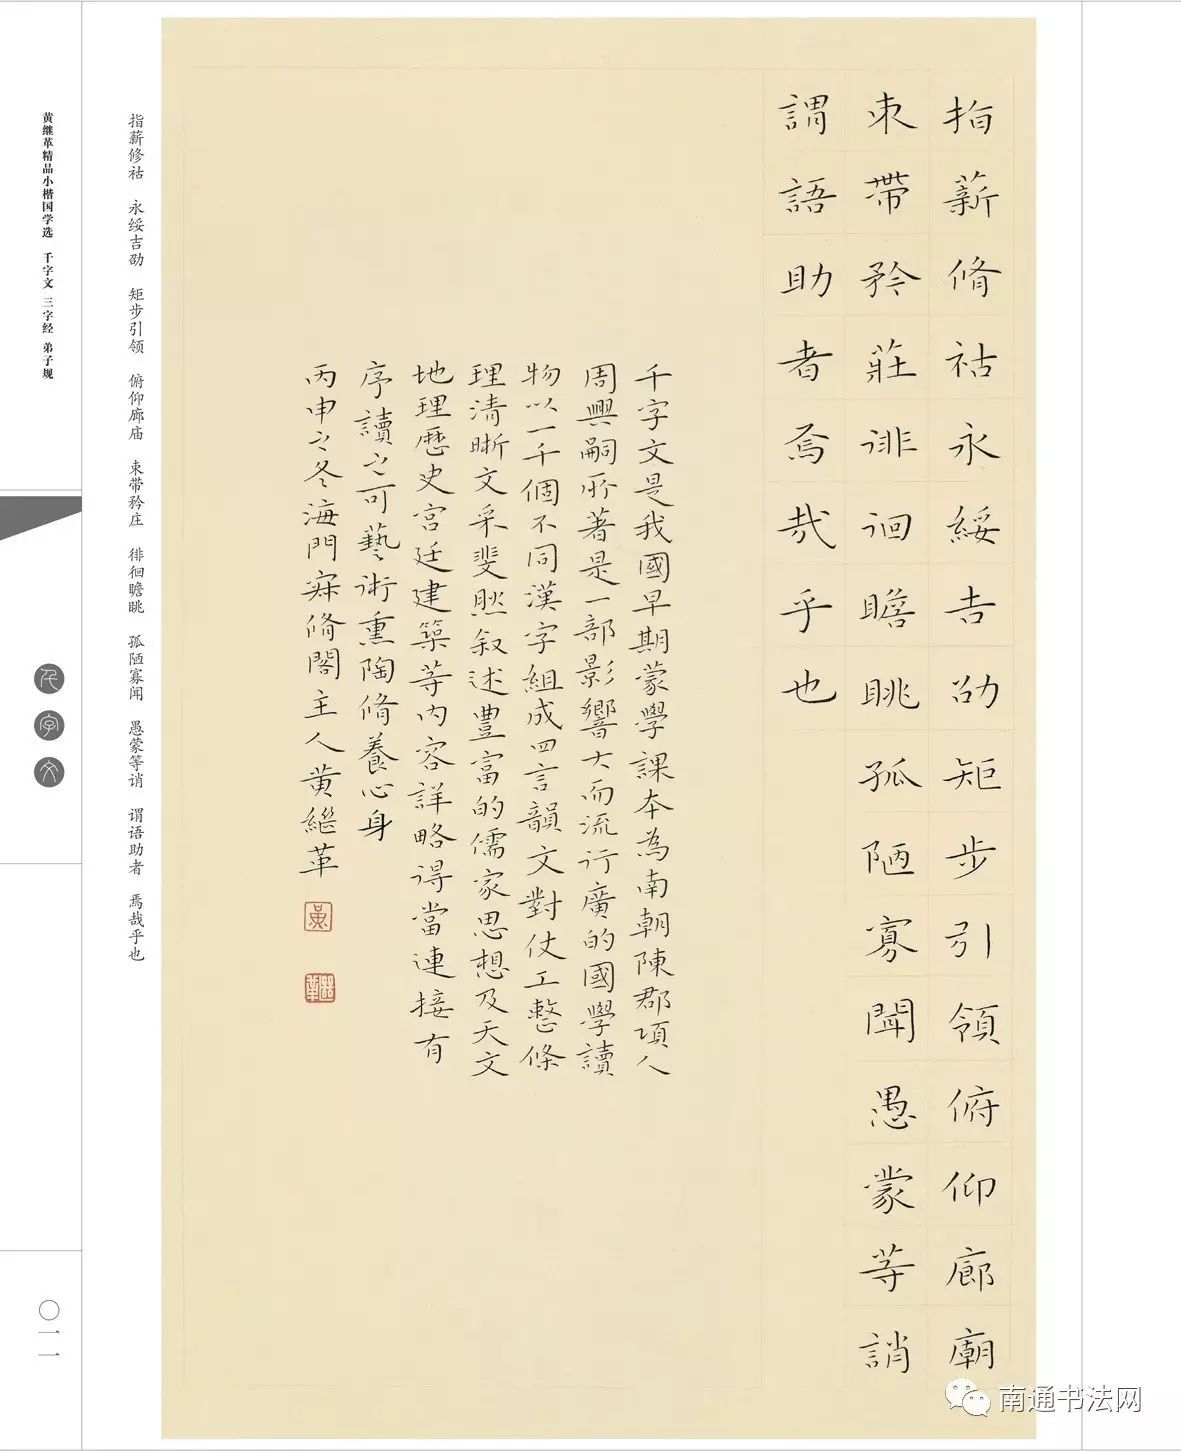 指薪脩祜永綏吉劭矩步引領俯仰廊廟
束帶矜莊徘徊瞻眺孤陋寡聞愚蒙等誚
謂語助者焉哉乎也
千字文是我國早期蒙學課本為南朝陳郡項人
周興嗣所著是一部影響大而流行廣的國學讀
物以一千個不同漢字組成四言韻文對仗工整條
理清晰文采斐然叙述豊富的儒家思想及天文
地理歷史宮廷建築等内容詳略得當連接有
序讀之可藝術熏陶脩養心身
丙申之冬海門寐脩閣主人黄繼革
黄
繼革
指薪修祜 永绥吉劭 矩步引领 俯仰廊庙 束带矜庄 徘徊瞻眺 孤陋寡闻 愚蒙等诮 谓语助者 焉哉乎也
黄继革精品小楷国学选 千字文 三字经 弟子规
千字文
〇一一
南通书法网